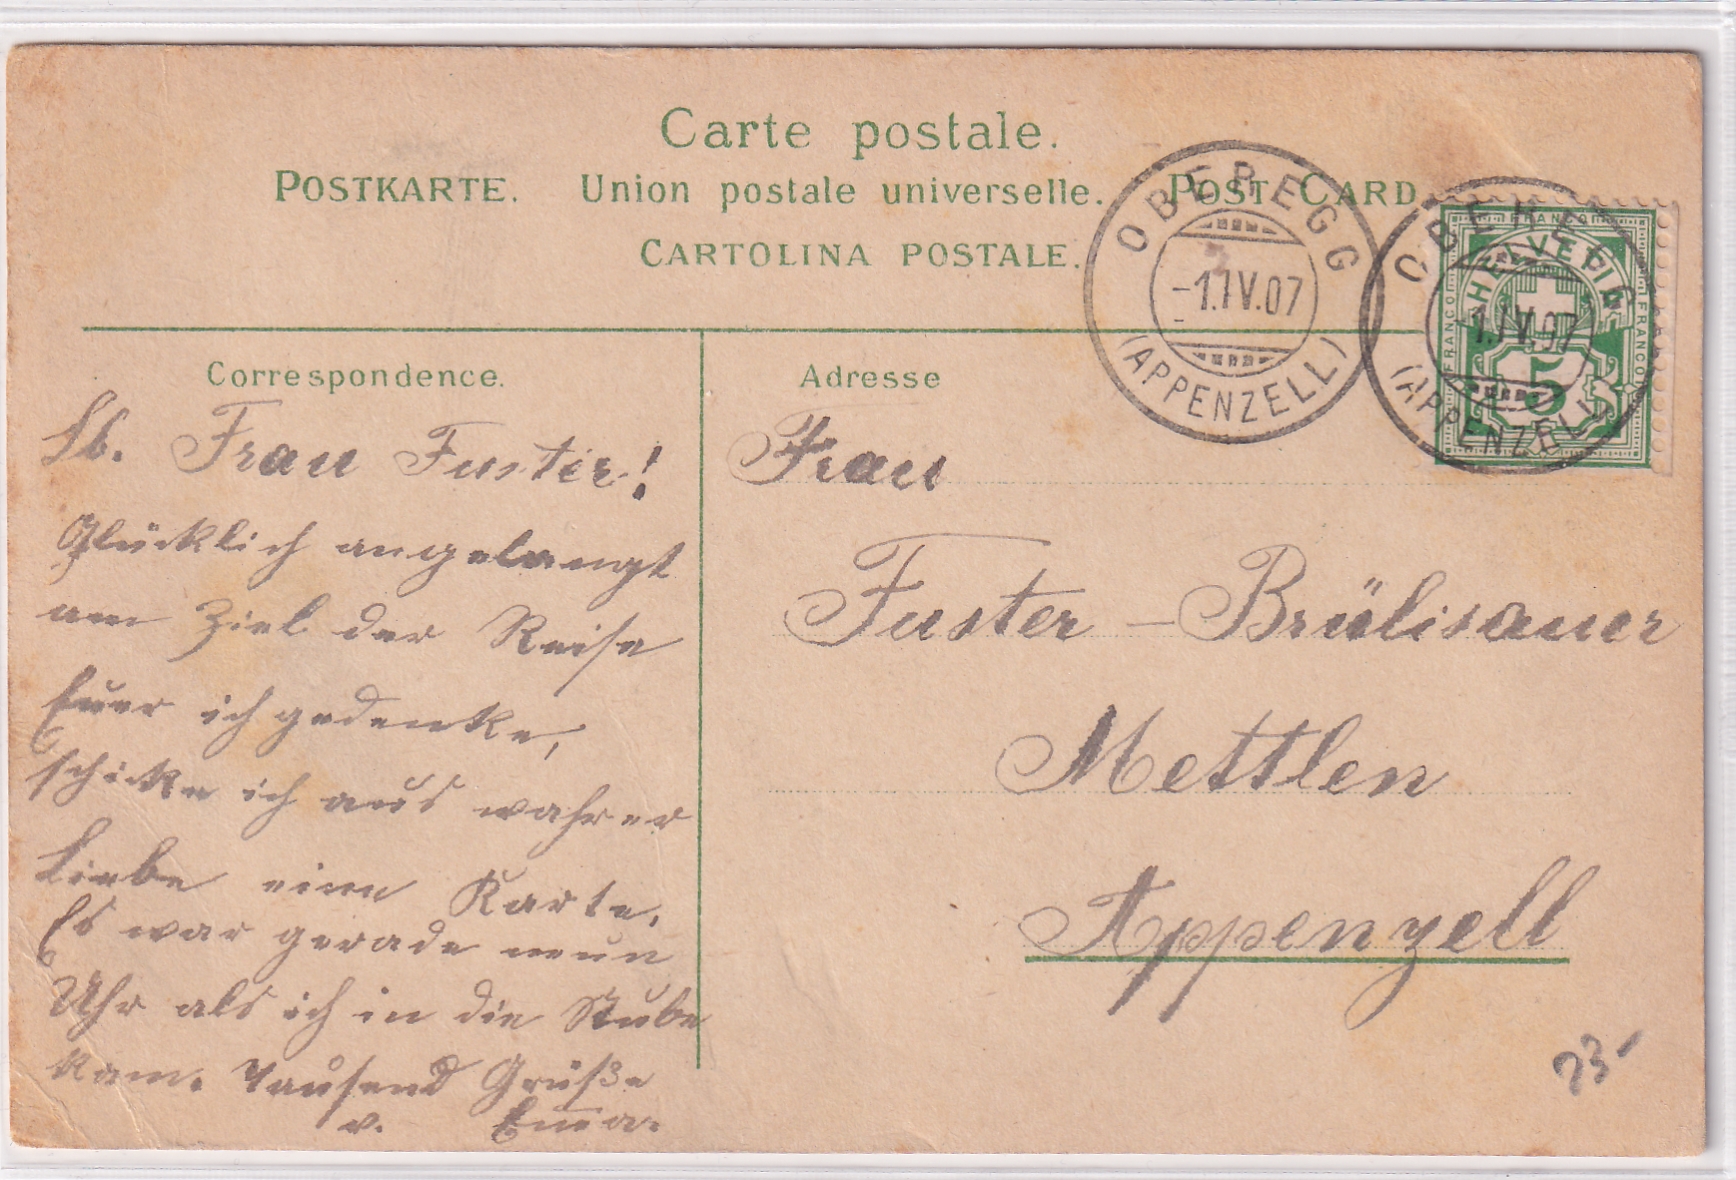 Carte postale.
POSTKARTE. Union postale universelle. POST CARD
CARTOLINA POSTALE.
OBEREGG
-1.IV.07
(APPENZELL)
OBEREGG
1.IV.07
(APPENZELL)
FRANCO
HELVETIA
FRANCO
FRANCO
5
Correspondence.
Lb. Frau Fuster!
Glücklich angelangt
am Ziel der Reise
Euer ich gedenke,
schicke ich aus wahrer
Liebe eine Karte.
Es war gerade neun
Uhr als ich in die Stube
kam. Tausend Grüße
v. Emma.
Adresse
Frau
Fuster - Brülisauer
Mettlen
Appenzell
23-